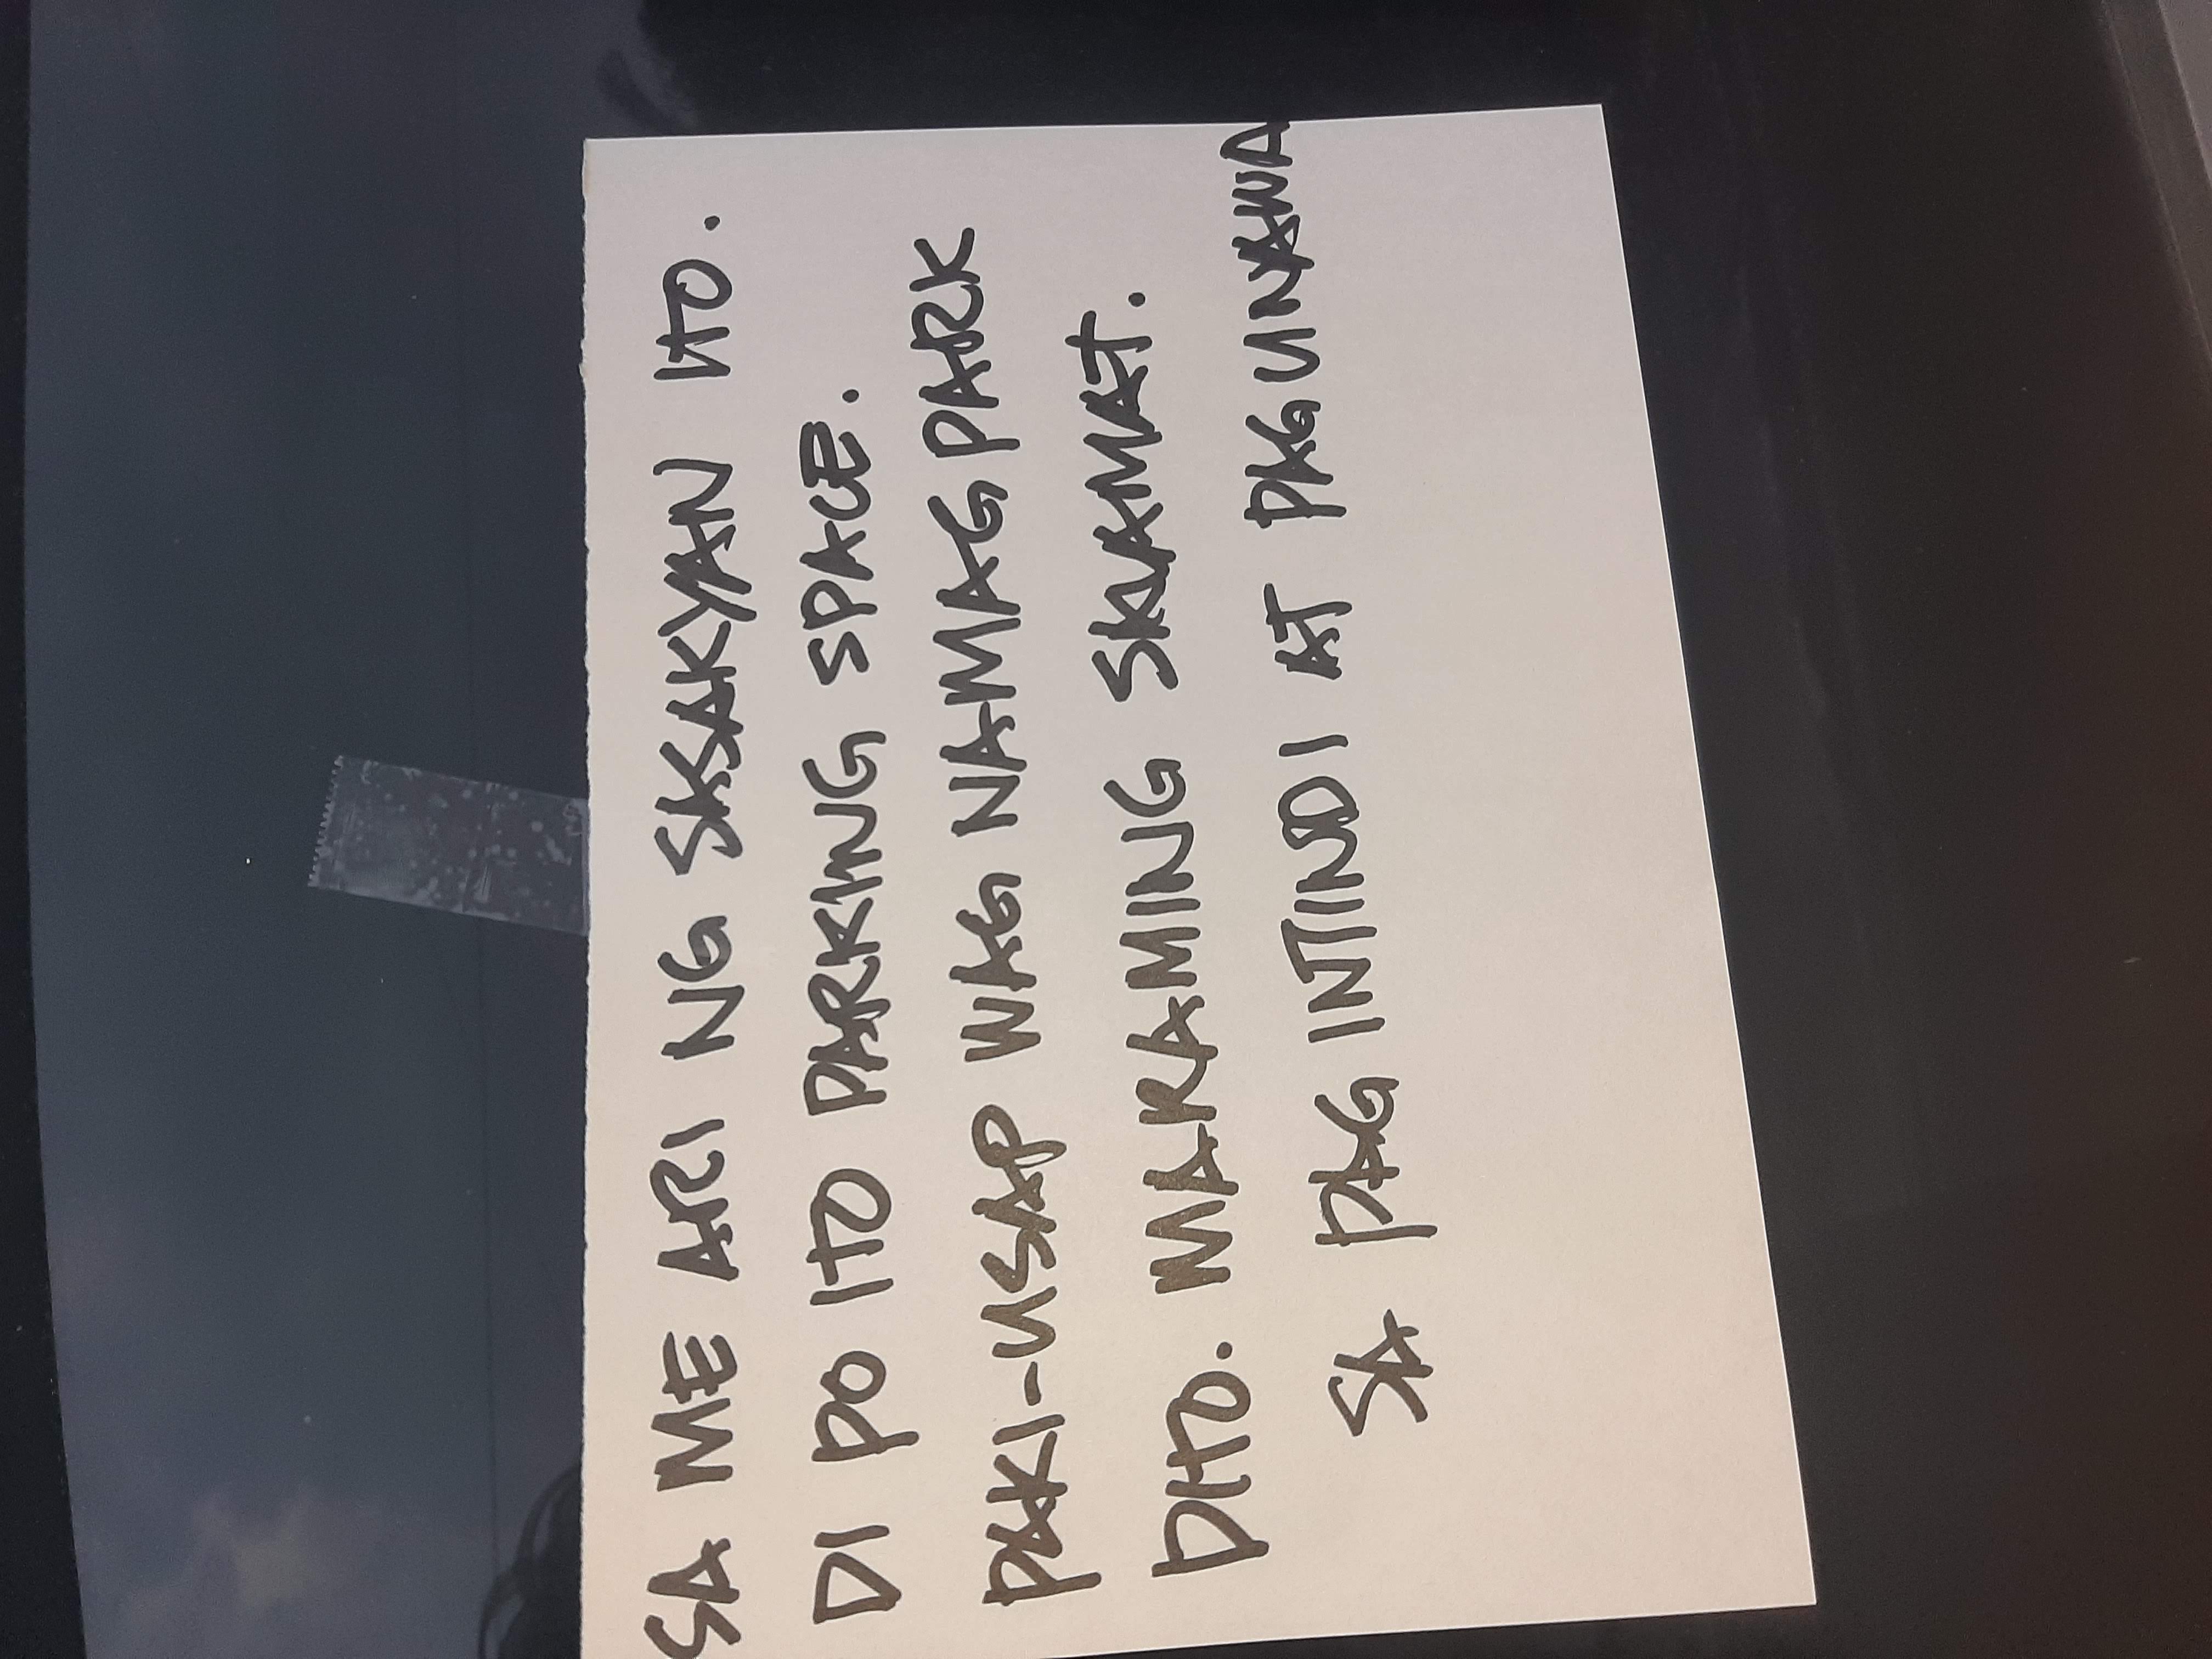 SA ME ARI NG SASAKYAN ITO.
DI PO ITO PARKING SPACE.
PAKI-USAP WAG NAMAG PARK
DITO. MARAMING SALAMAT.
SA PAG INTINDI AT PAG UNAWA